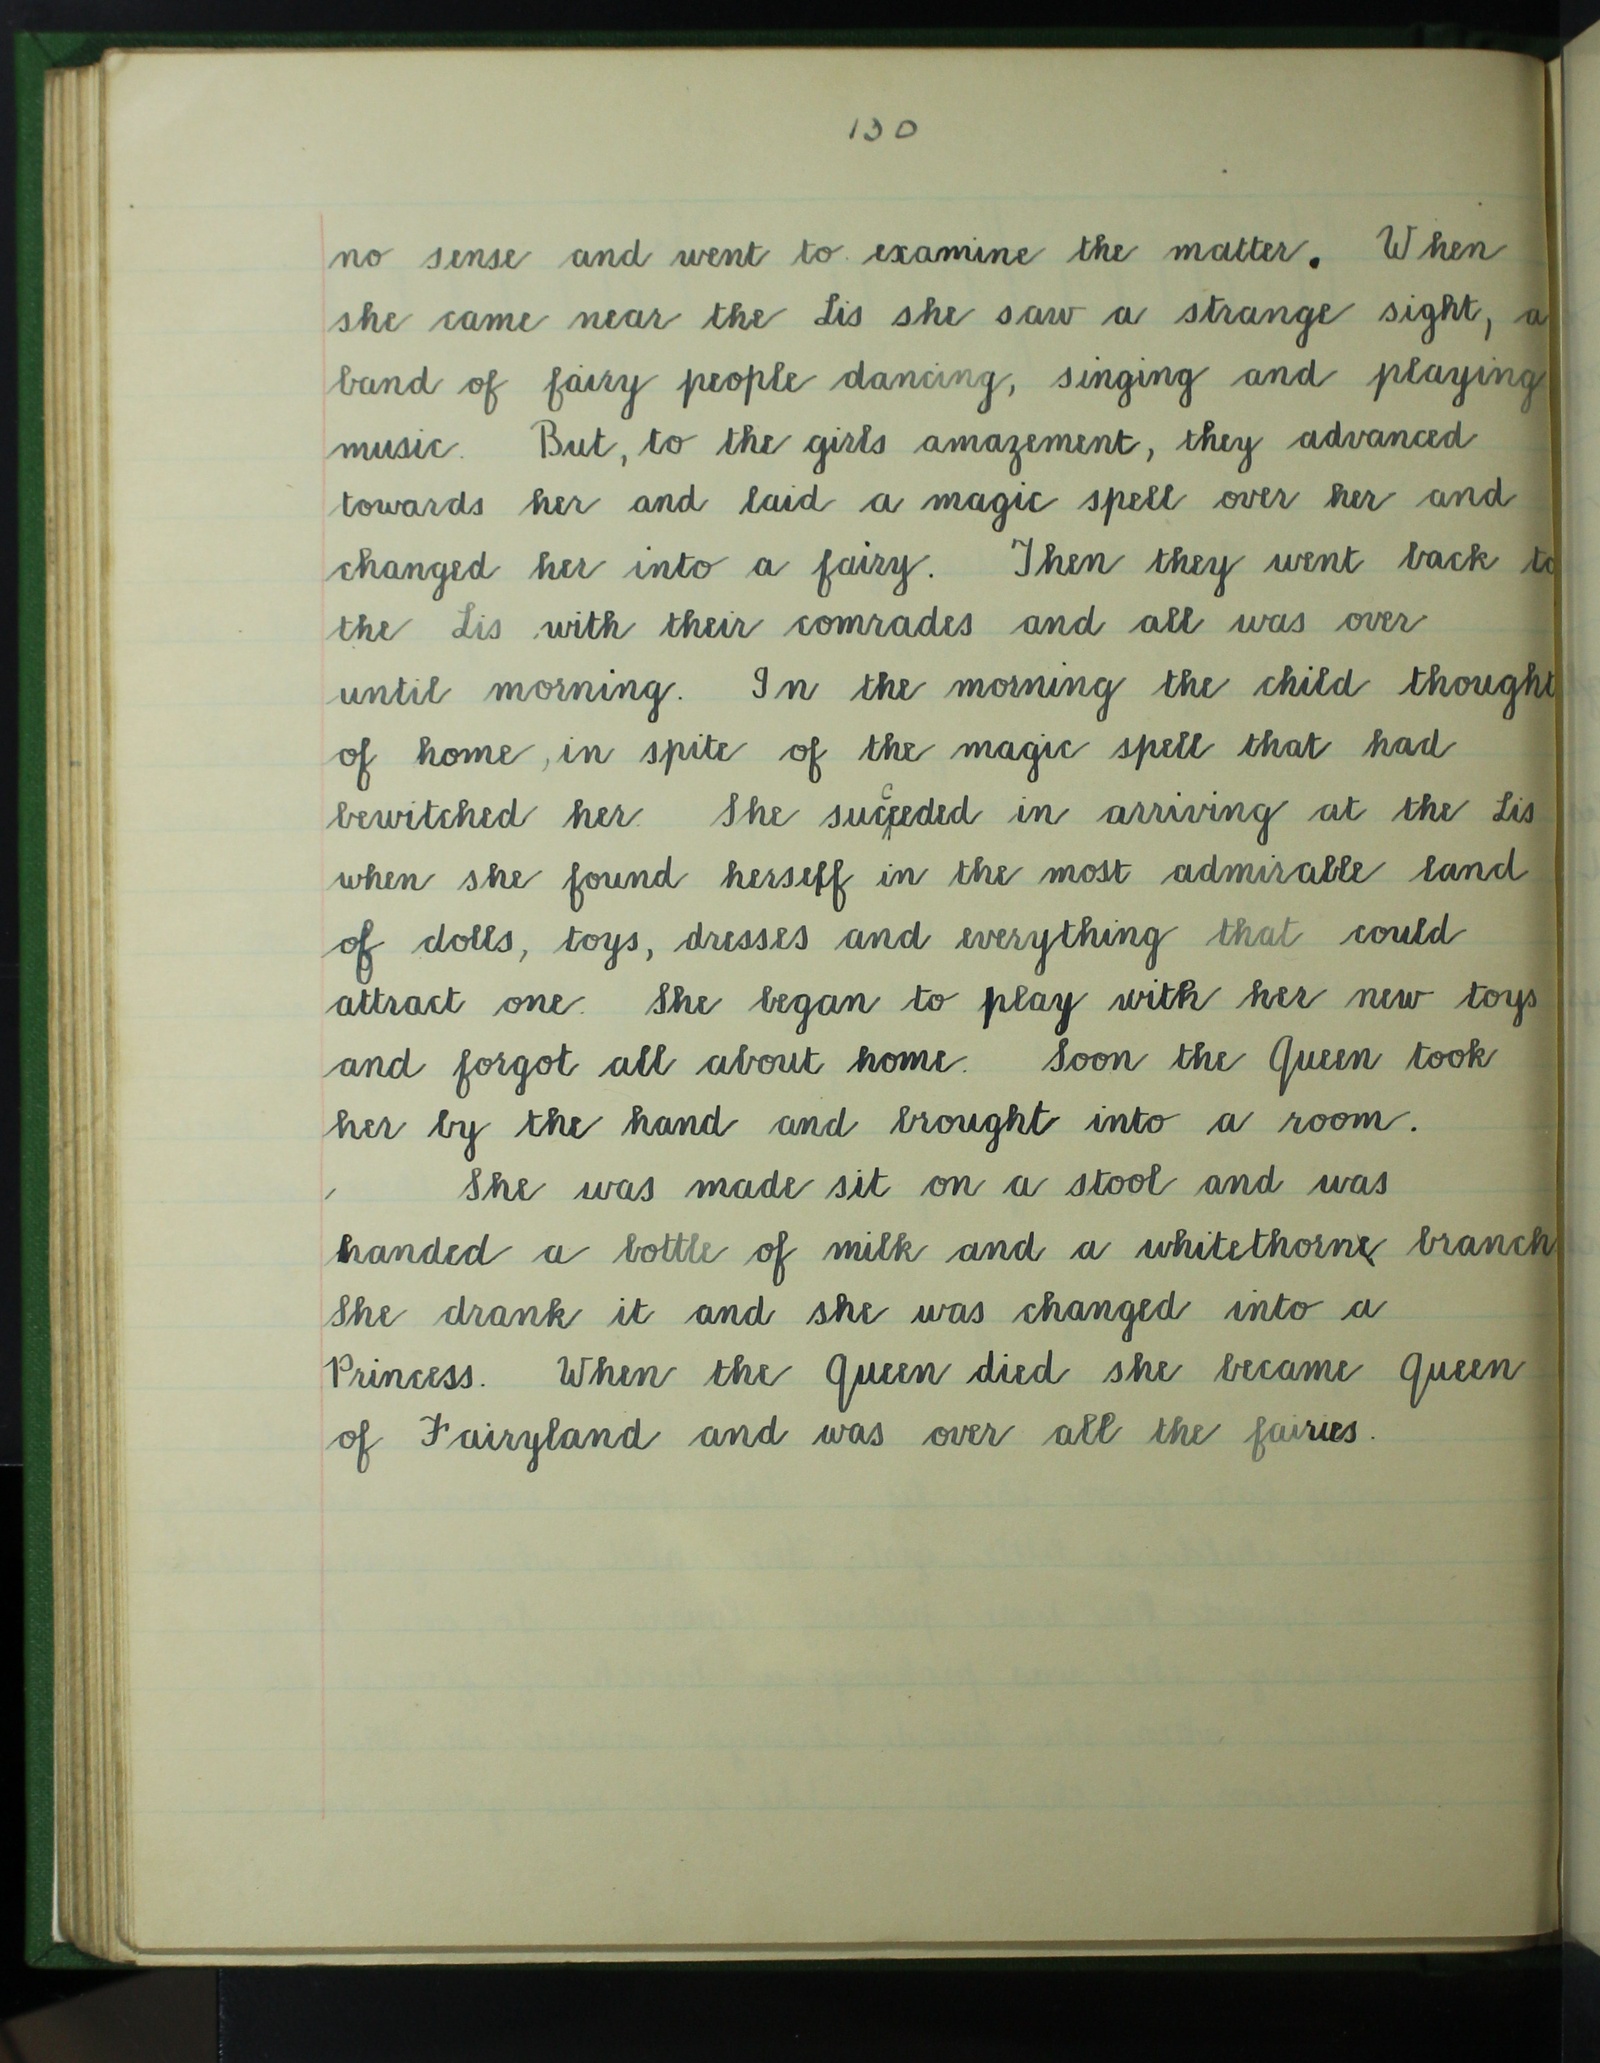 130
no sense and went to examine the matter. When
she came near the Lis she saw a strange sight, a
band of fairy people dancing, singing and playing
music. But, to the girls amazement, they advanced
towards her and laid a magic spell over her and
changed her into a fairy. Then they went back to
the Lis with their comrades and all was over
until morning. In the morning the child thought
of home, in spite of the magic spell that had
bewitched her. She succeeded in arriving at the Lis
when she found herself in the most admirable land
of dolls, toys, dresses and everything that could
attract one. She began to play with her new toys
and forgot all about home. Soon the Queen took
her by the hand and brought into a room.
She was made sit on a stool and was
handed a bottle of milk and a whitethorne branch
She drank it and she was changed into a
Princess. When the Queen died she became Queen
of Fairyland and was over all the fairies.